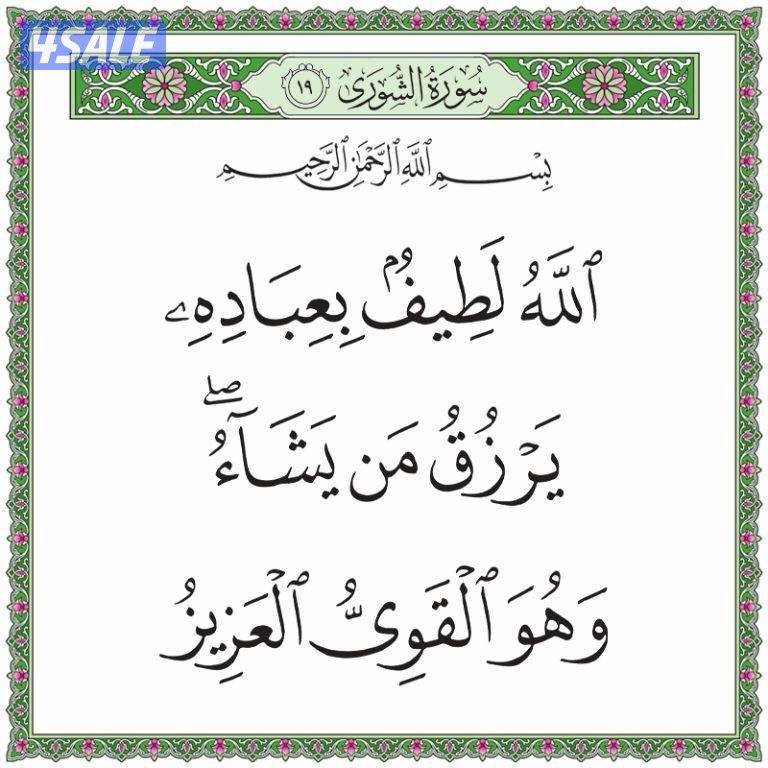 4SALE
سُورَةُ الشُّورَى ١٩
بِسْمِ ٱللَّهِ ٱلرَّحْمَٰنِ ٱلرَّحِيمِ
ٱللَّهُ لَطِيفُۢ بِعِبَادِهِۦ
يَرْزُقُ مَن يَشَآءُۖ
وَهُوَ ٱلْقَوِىُّ ٱلْعَزِيزُ